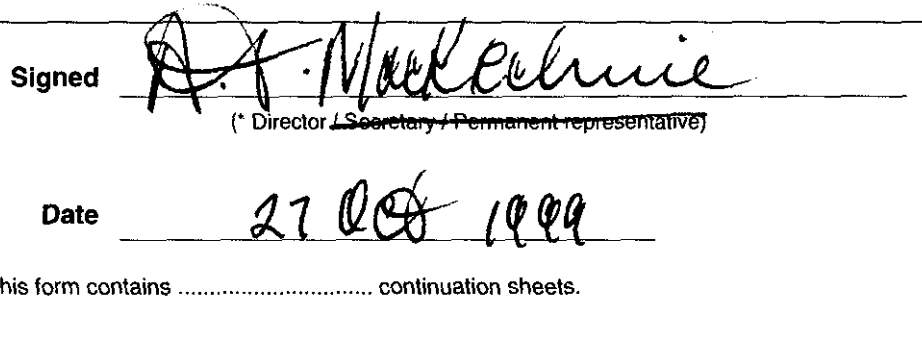 Signed A. J. MacKechnie
(* Director / Secretary / Permanent representative)
Date 27 Oct 1999
his form contains ................................ continuation sheets.